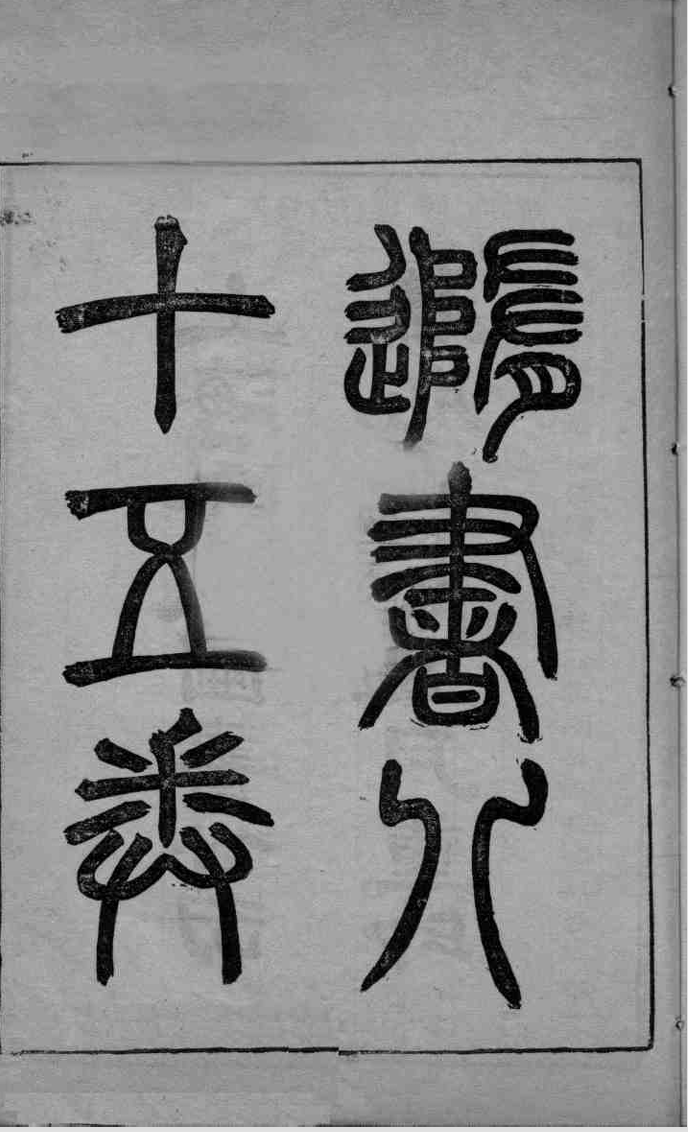 隨書八
十五卷